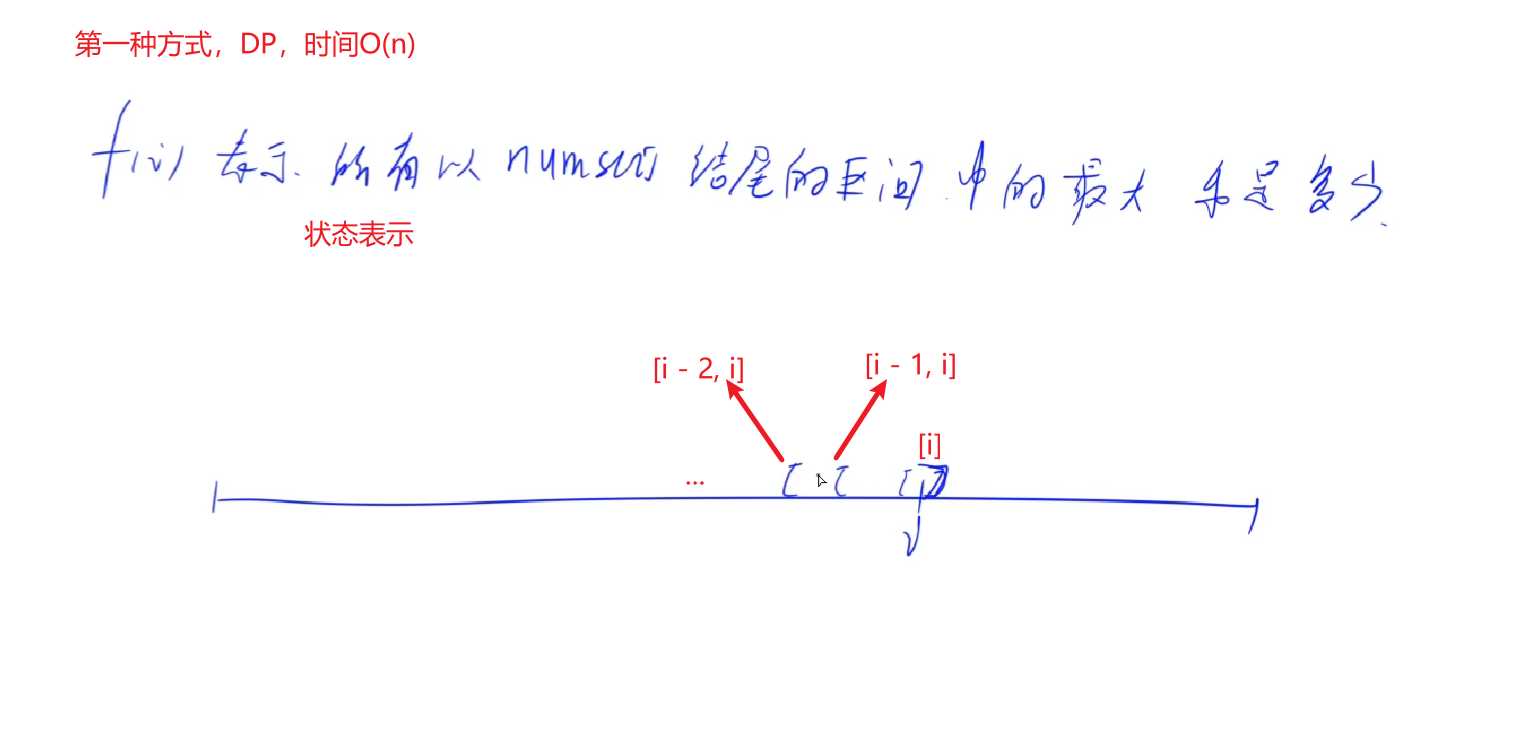 第一种方式，DP，时间O(n)
f(i) 表示 所有以 nums[i] 结尾的区间中的最大和是多少.
状态表示
[i - 2, i] [i - 1, i]
[i]
... [ [ [ ]
i